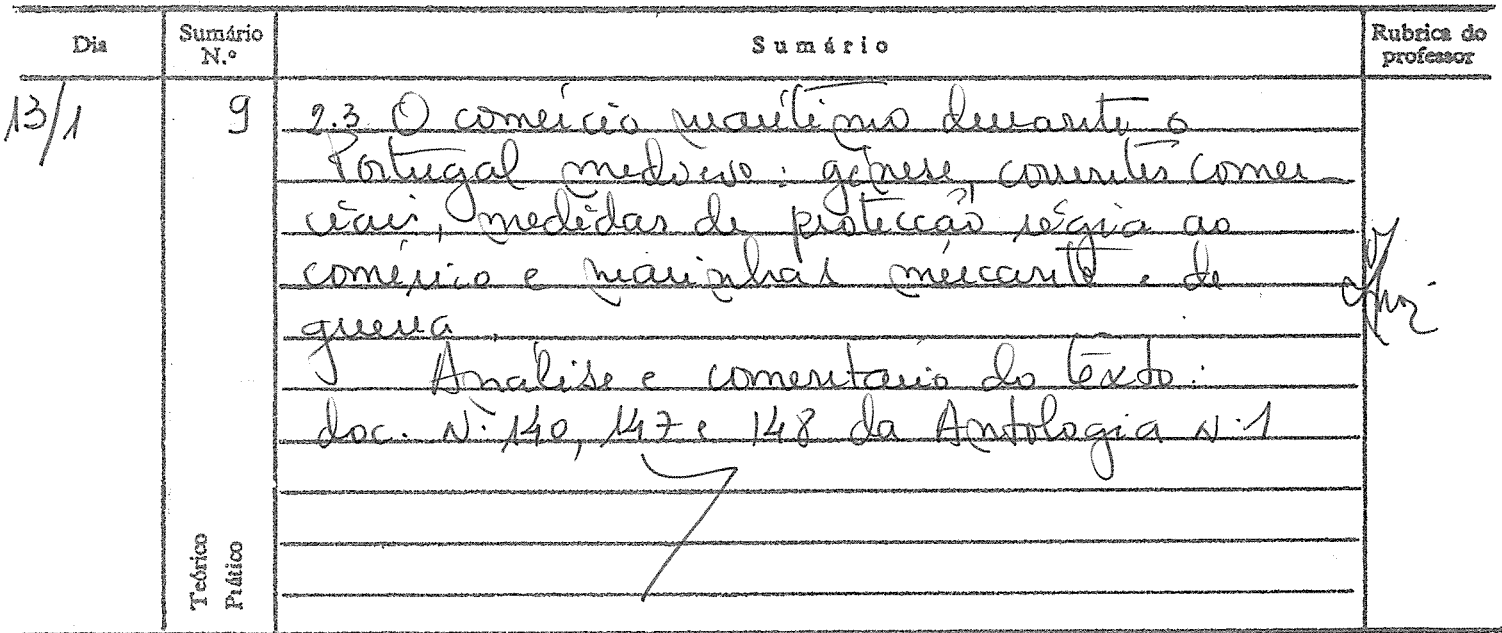 Dia Sumário N.º Sumário Rubrica do professor
13/1 9 2.3 O comércio marítimo durante o
Portugal medievo: génese, correntes comer-
ciais, medidas de protecção régia ao
comércio e marinhas mercante e de
guerra.
Análise e comentário do texto:
doc. N.º 140, 147 e 148 da Antologia N.º 1
Teórico
Prático